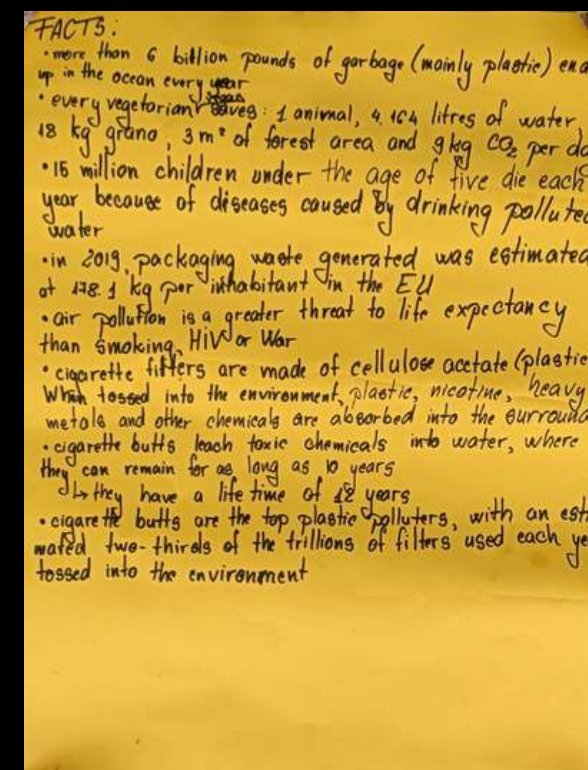 FACTS:
• more than 6 billion pounds of garbage (mainly plastic) end
up in the ocean every year
• every vegetarian saves: 1 animal, 4.164 litres of water,
18 kg grano, 3 m² of forest area and 9 kg CO₂ per da
• 15 million children under the age of five die each
year because of diseases caused by drinking polluted
water
• in 2019, packaging waste generated was estimated
at 178.1 kg per inhabitant in the EU
• air pollution is a greater threat to life expectancy
than smoking, HiV or War
• cigarette filters are made of cellulose acetate (plastic
When tossed into the environment, plastic, nicotine, heavy
metals and other chemicals are absorbed into the surround
• cigarette butts leach toxic chemicals into water, where
they can remain for as long as 10 years
↳ they have a life time of 12 years
• cigarette butts are the top plastic polluters, with an esti
mated two-thirds of the trillions of filters used each ye
tossed into the environment